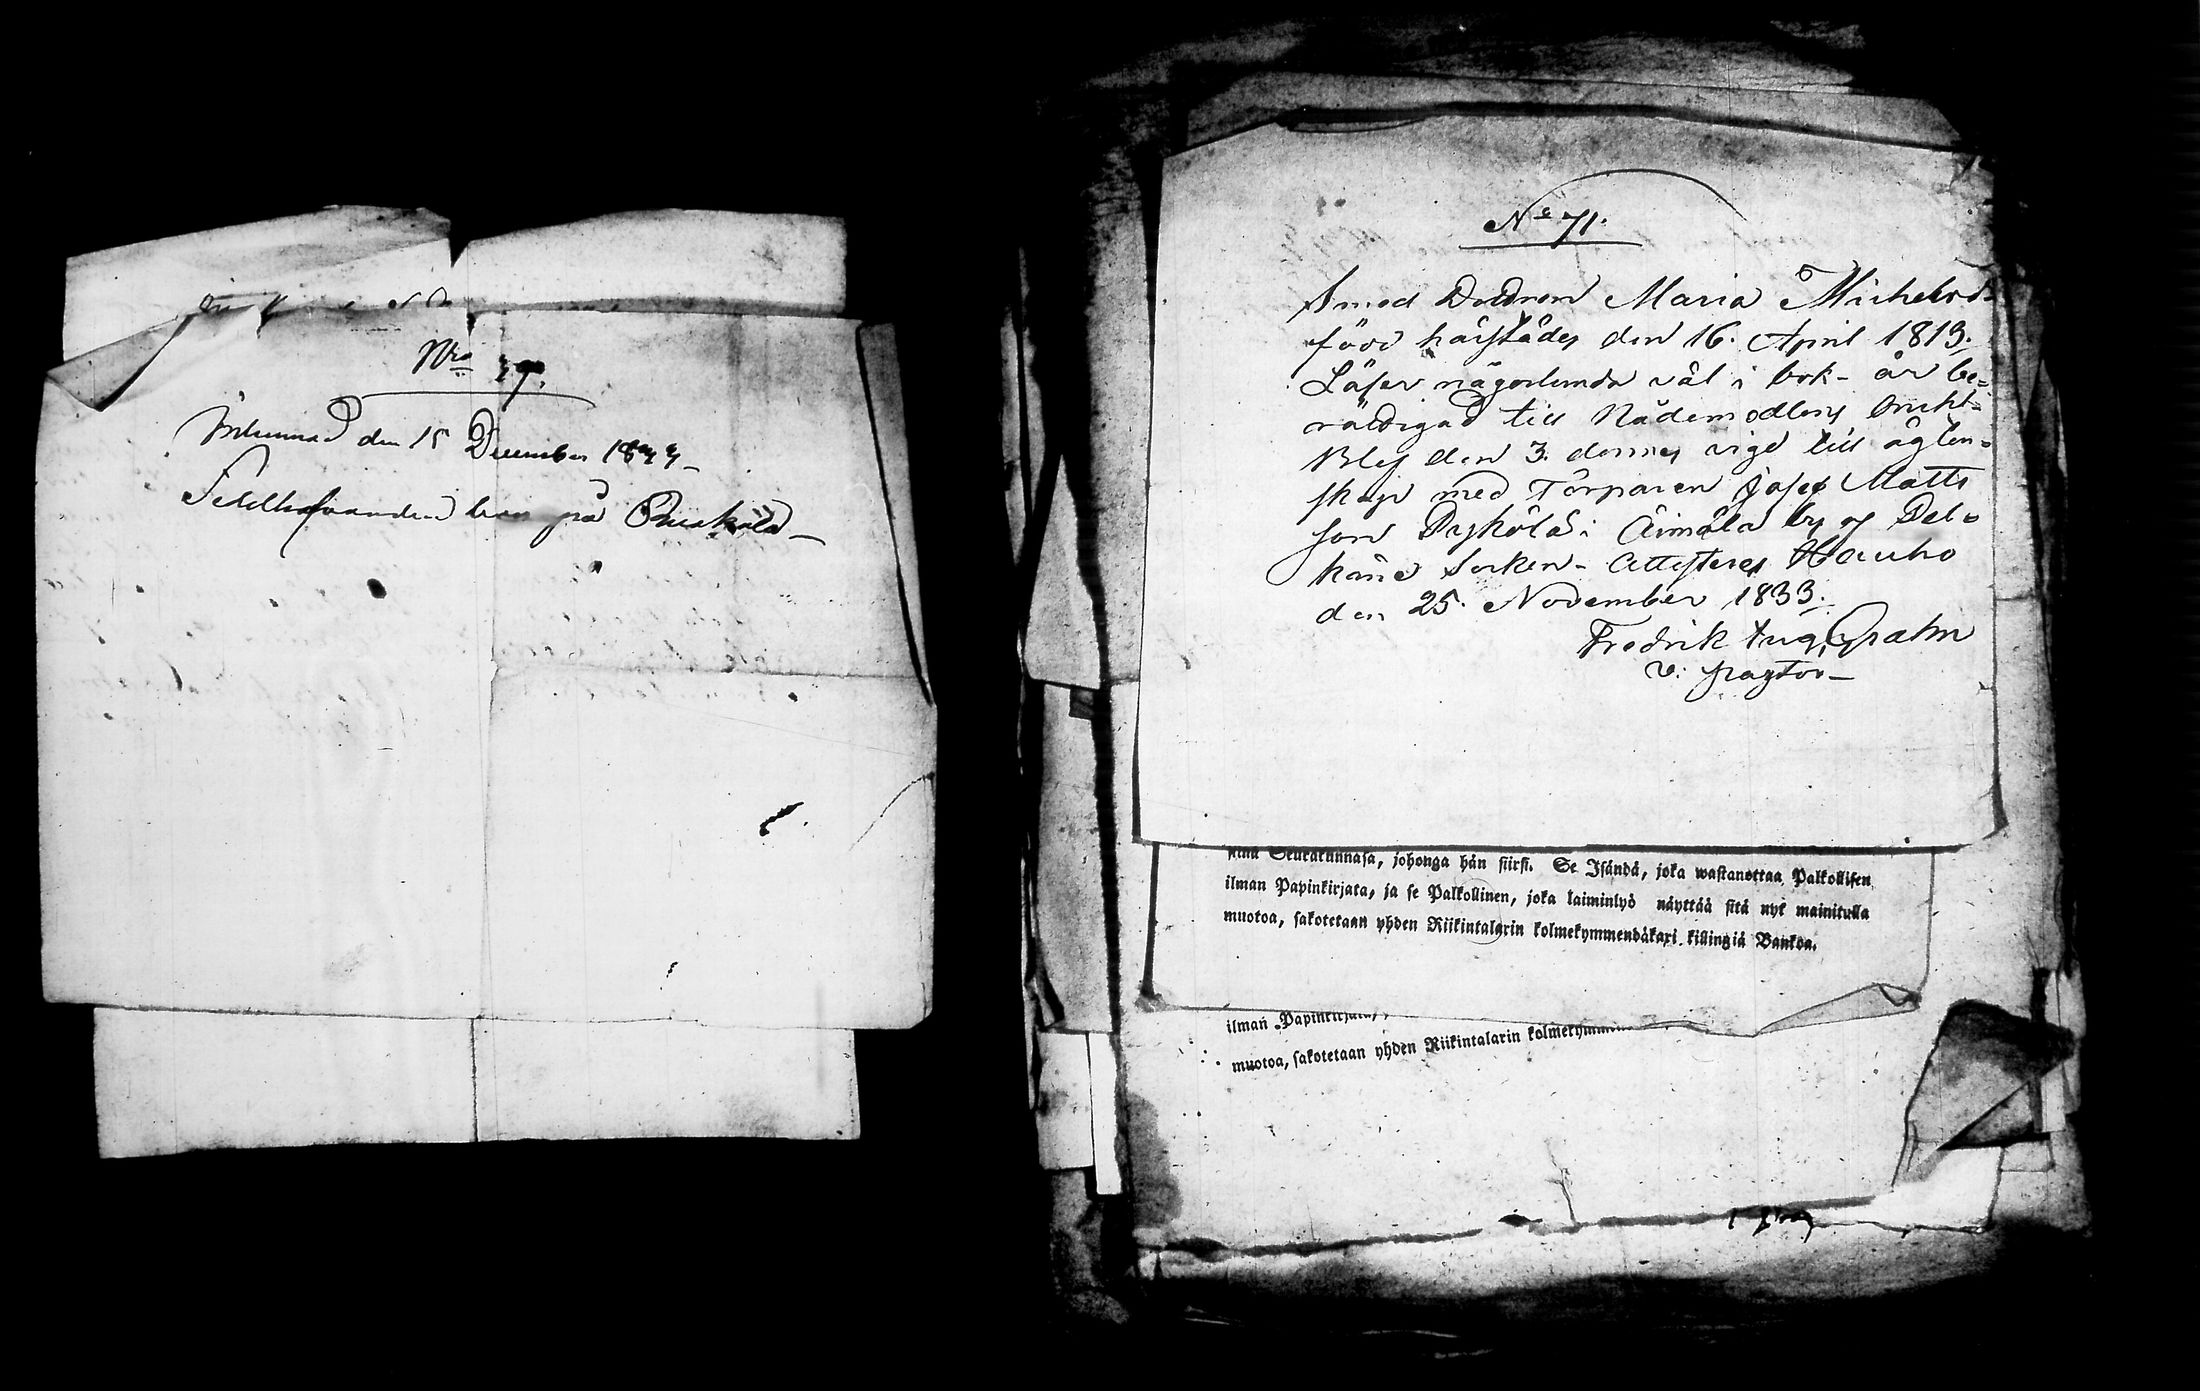 Nro 37.
Inlemnad den 15 December 1833
på Puiskola
No 71.
Smed Dottren Maria Michelsd:
född härstädes den 16. April 1813.
Läser någorlunda väl i bok- är be=
rättigad till Nådemedlens bruk-
Blef den 3. dennes vigd till ägten=
skap med Torparen Josef Matts
son Pyskölä i Äimälä by af Pel=
käne Socken- Attesteras Hauho
den 25. November 1833.
Fredrik Aug. Grahn
v: pastor
siinä Seurakunnasa, johonga hän siirsi. Se Isändä, joka wastanottaa Palkollisen
ilman Papinkirjata, ja se Palkollinen, joka laiminlyö näyttää sitä nyt mainitulla
muotoa, sakotetaan yhden Riikintalarin kolmekymmendäkaxi killingiä Bankoa.
ilman Papinkirjata,
muotoa, sakotetaan yhden Riikintalarin